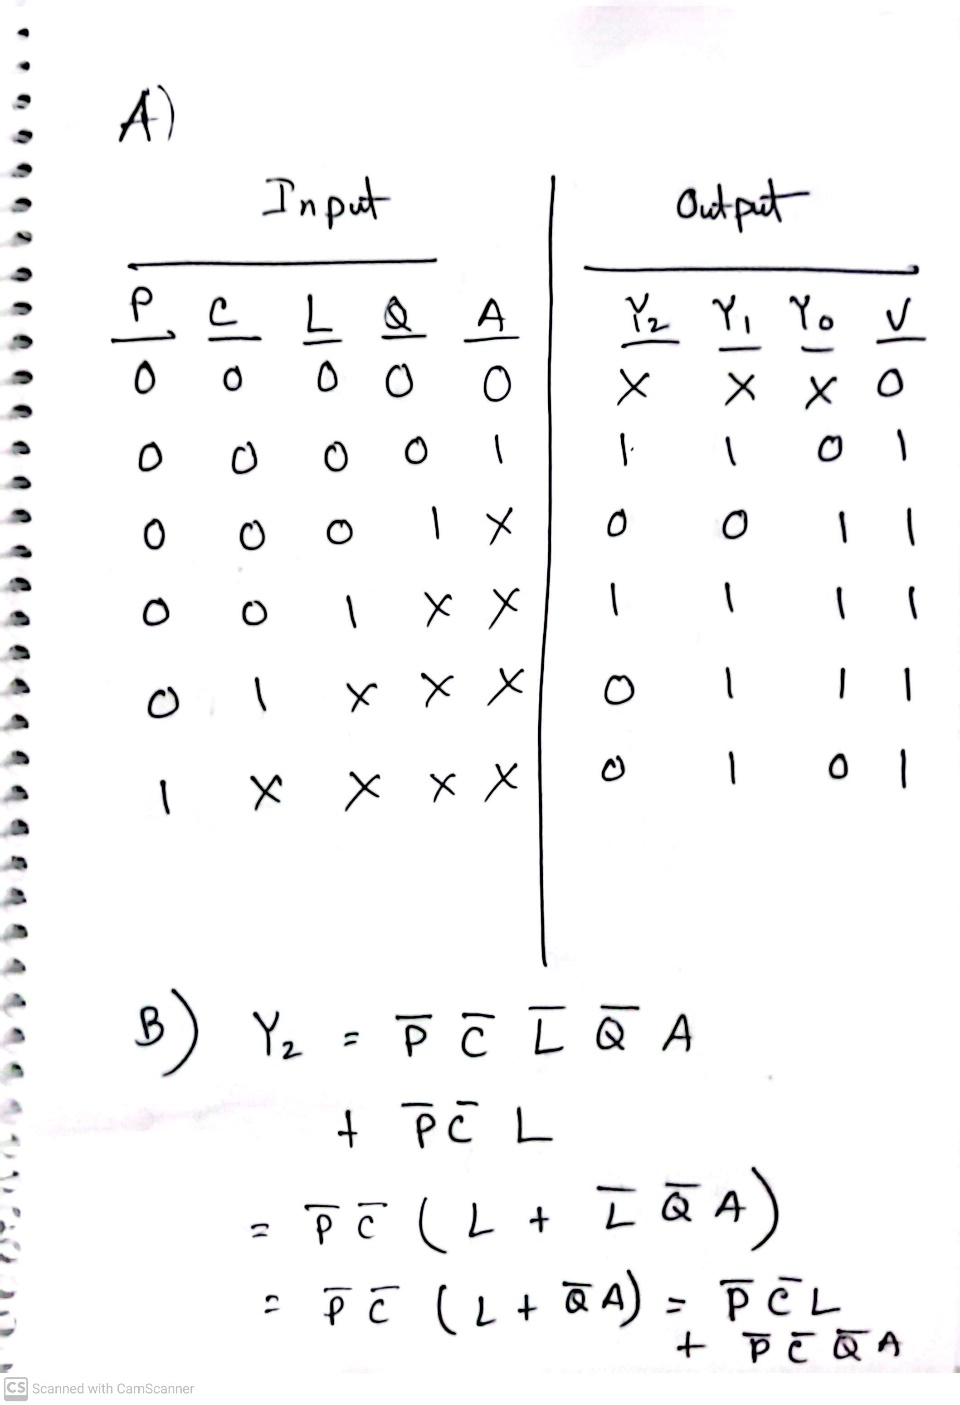 A)
Input Output
P C L Q A Y₂ Y₁ Y₀ V
0 0 0 0 0 X X X 0
0 0 0 0 1 1 1 0 1
0 0 0 1 X 0 0 1 1
0 0 1 X X 1 1 1 1
0 1 X X X 0 1 1 1
1 X X X X 0 1 0 1
B) Y₂ = P̅ C̅ L̅ Q̅ A
+ P̅ C̅ L
= P̅ C̅ ( L + L̅ Q̅ A )
= P̅ C̅ ( L + Q̅ A ) = P̅ C̅ L
+ P̅ C̅ Q̅ A
CS Scanned with CamScanner